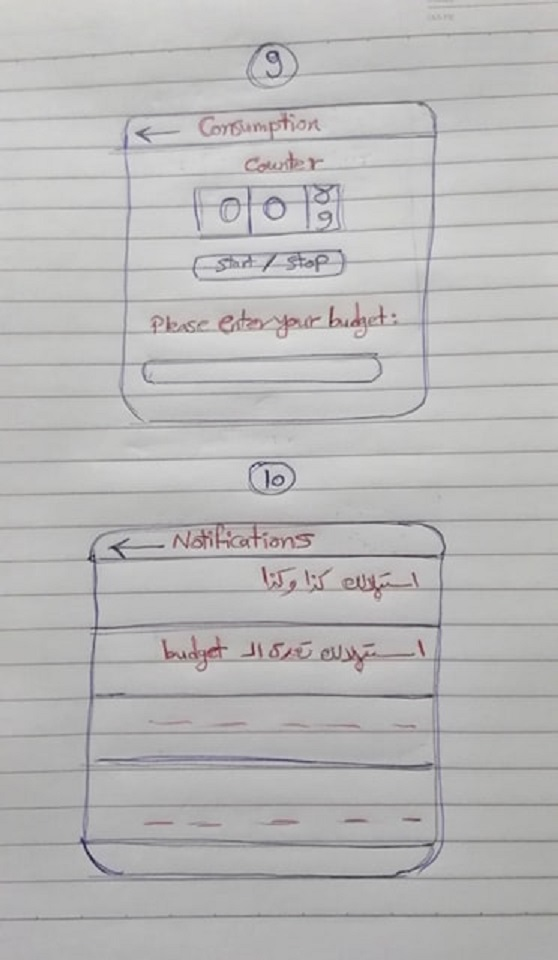 9
← Consumption
Counter
0 0 8
9
start / stop
Please enter your budget:
10
← Notifications
استهلاك كذا وكذا
استهلاك تعدى ال budget